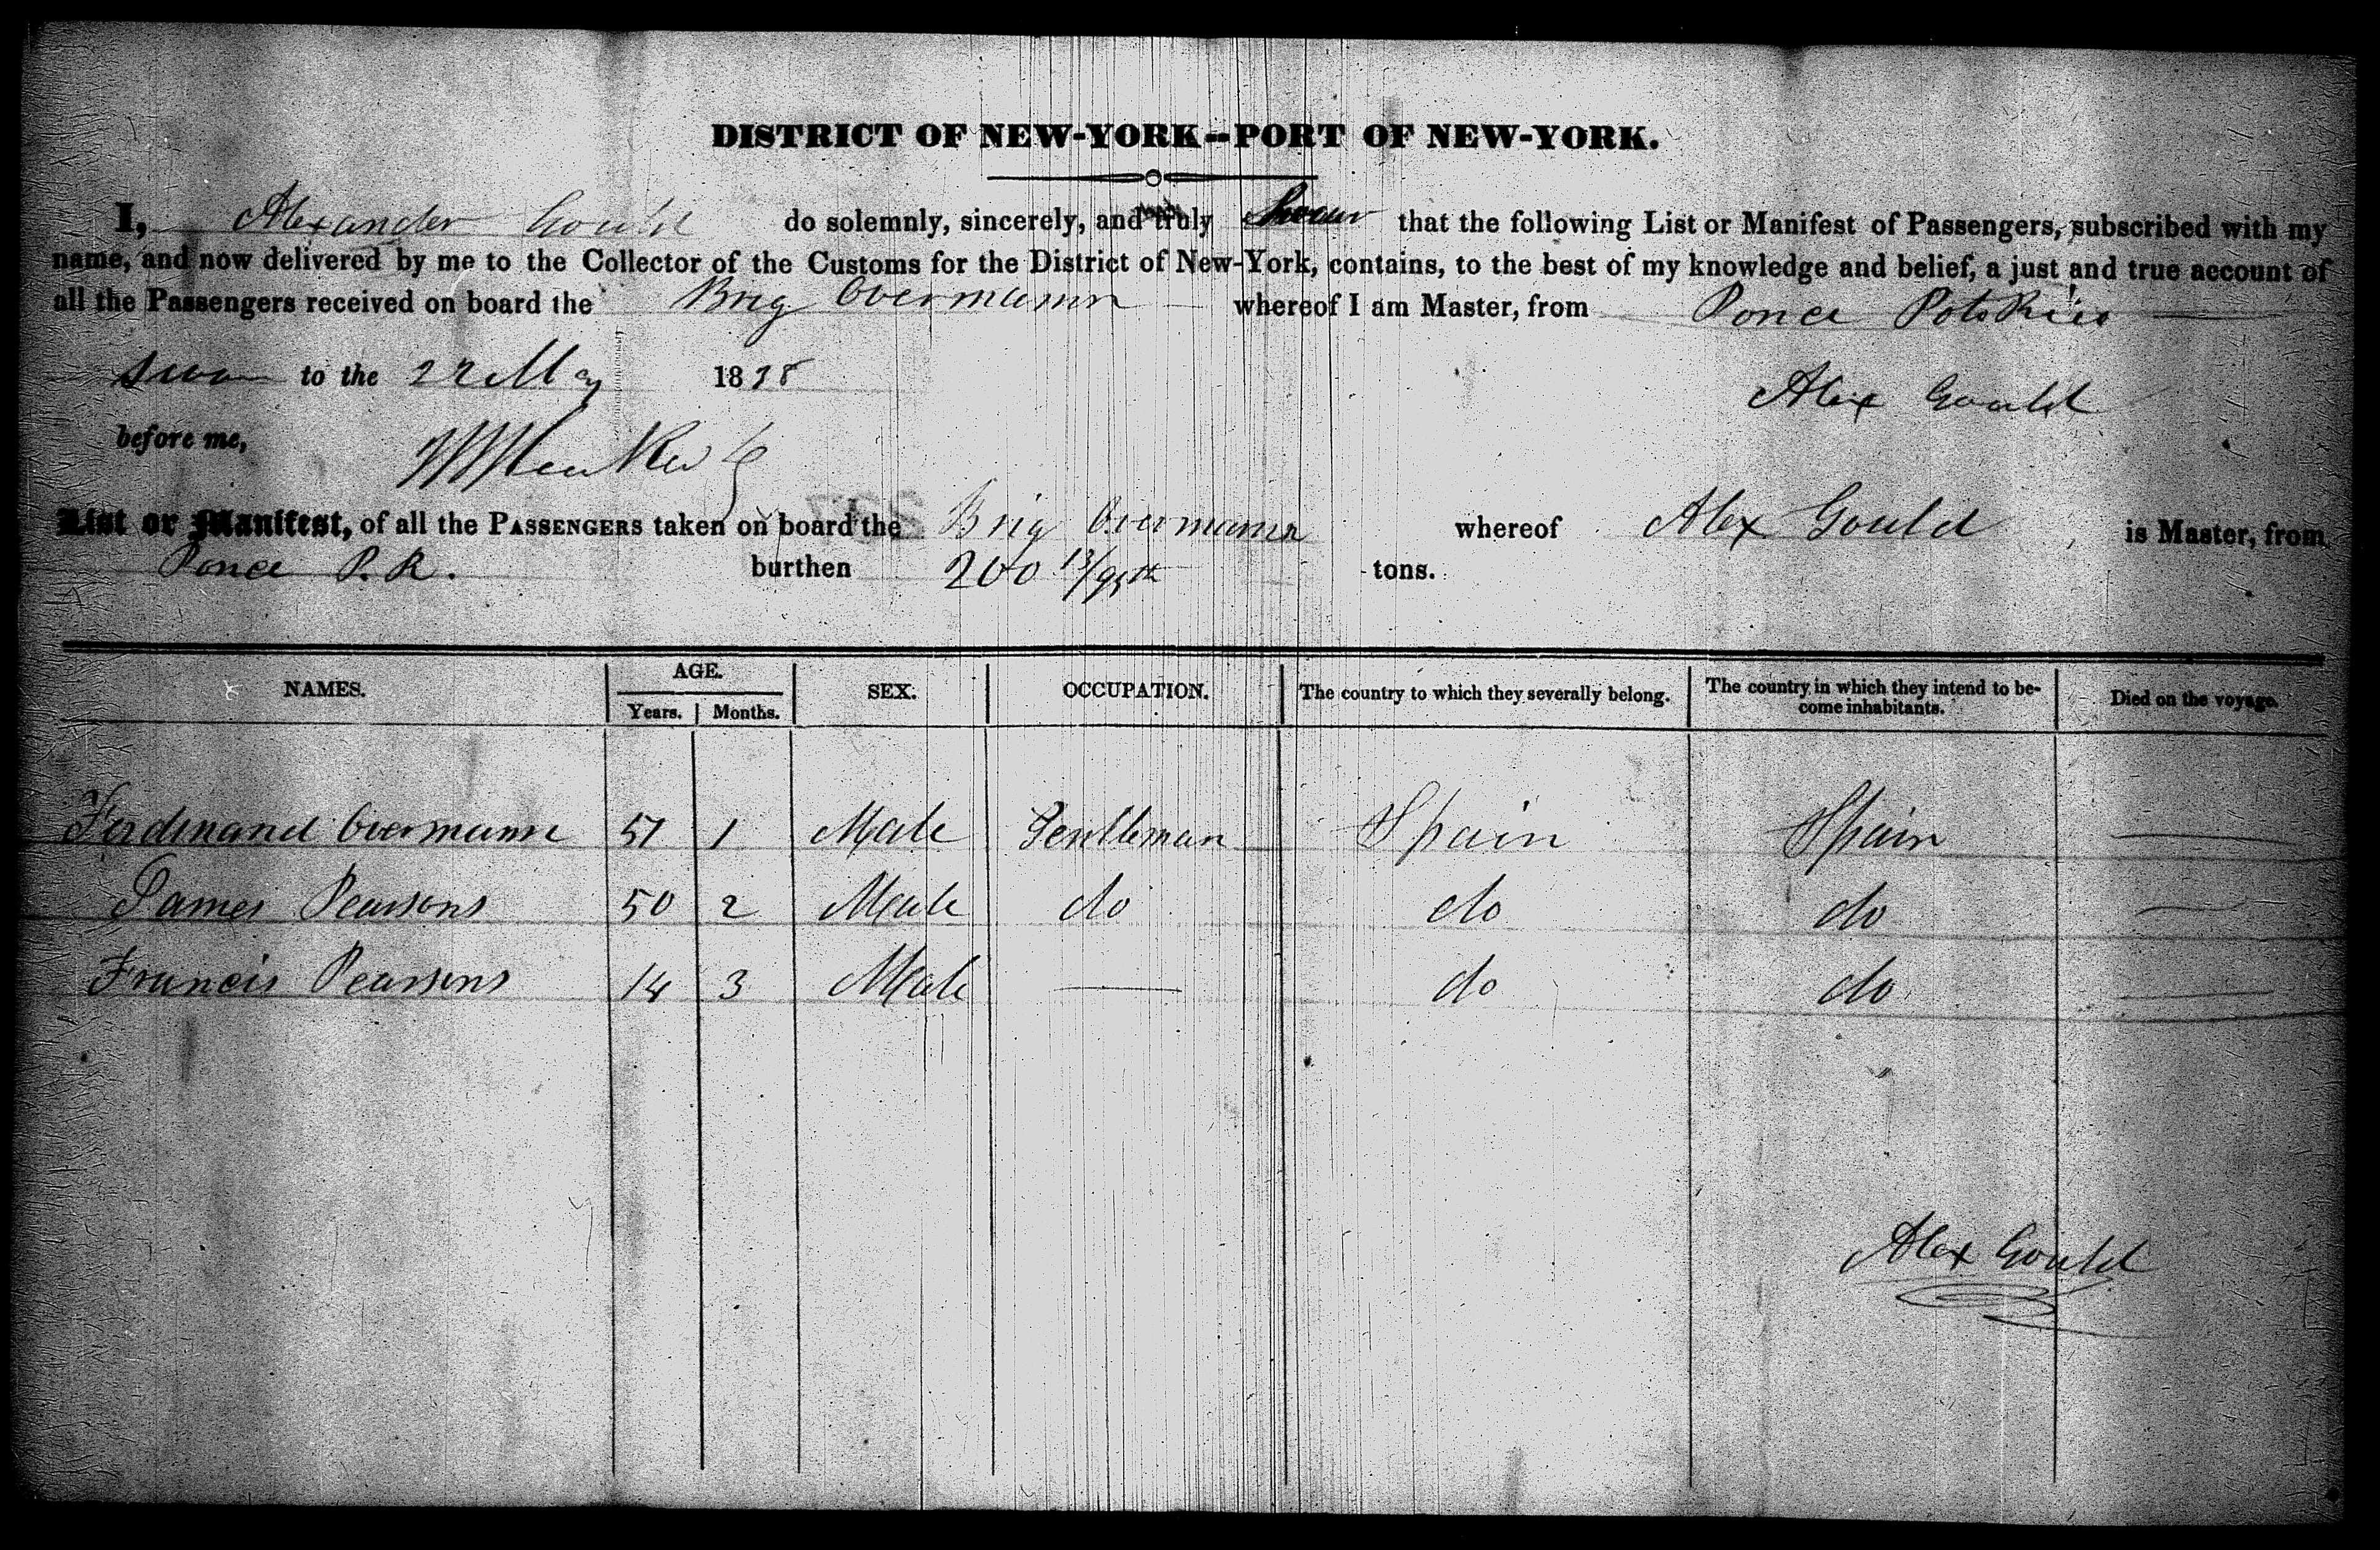 DISTRICT OF NEW-YORK--PORT OF NEW-YORK.
I, Alexander Gould do solemnly, sincerely, and truly Swear that the following List or Manifest of Passengers, subscribed with my
name, and now delivered by me to the Collector of the Customs for the District of New-York, contains, to the best of my knowledge and belief, a just and true account of
all the Passengers received on board the Brig Overmann whereof I am Master, from Ponce Poto Rico
Sworn to the 22 May 1838
Alex Gould
before me,
List or Manifest, of all the PASSENGERS taken on board the Brig Overmann whereof Alex Gould is Master, from
Ponce P.R. burthen 200 13/95th tons.
NAMES. AGE. SEX. OCCUPATION. The country to which they severally belong. The country in which they intend to be- Died on the voyage.
Years. Months. come inhabitants.
Ferdinand Overmann 51 1 Male Gentleman Spain Spain
James Pearsons 50 2 Male do do do
Francis Pearsons 14 3 Male — do do
Alex Gould